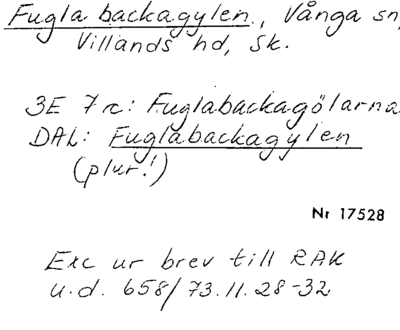 Fugla backagylen., Vånga sn,
Villands hd, Sk.
3E 7c: Fuglabackagölarna
DAL: Fuglabackagylen
(plur.!)
Nr 17528
Exc ur brev till RAK
u.d. 658/73.11.28-32